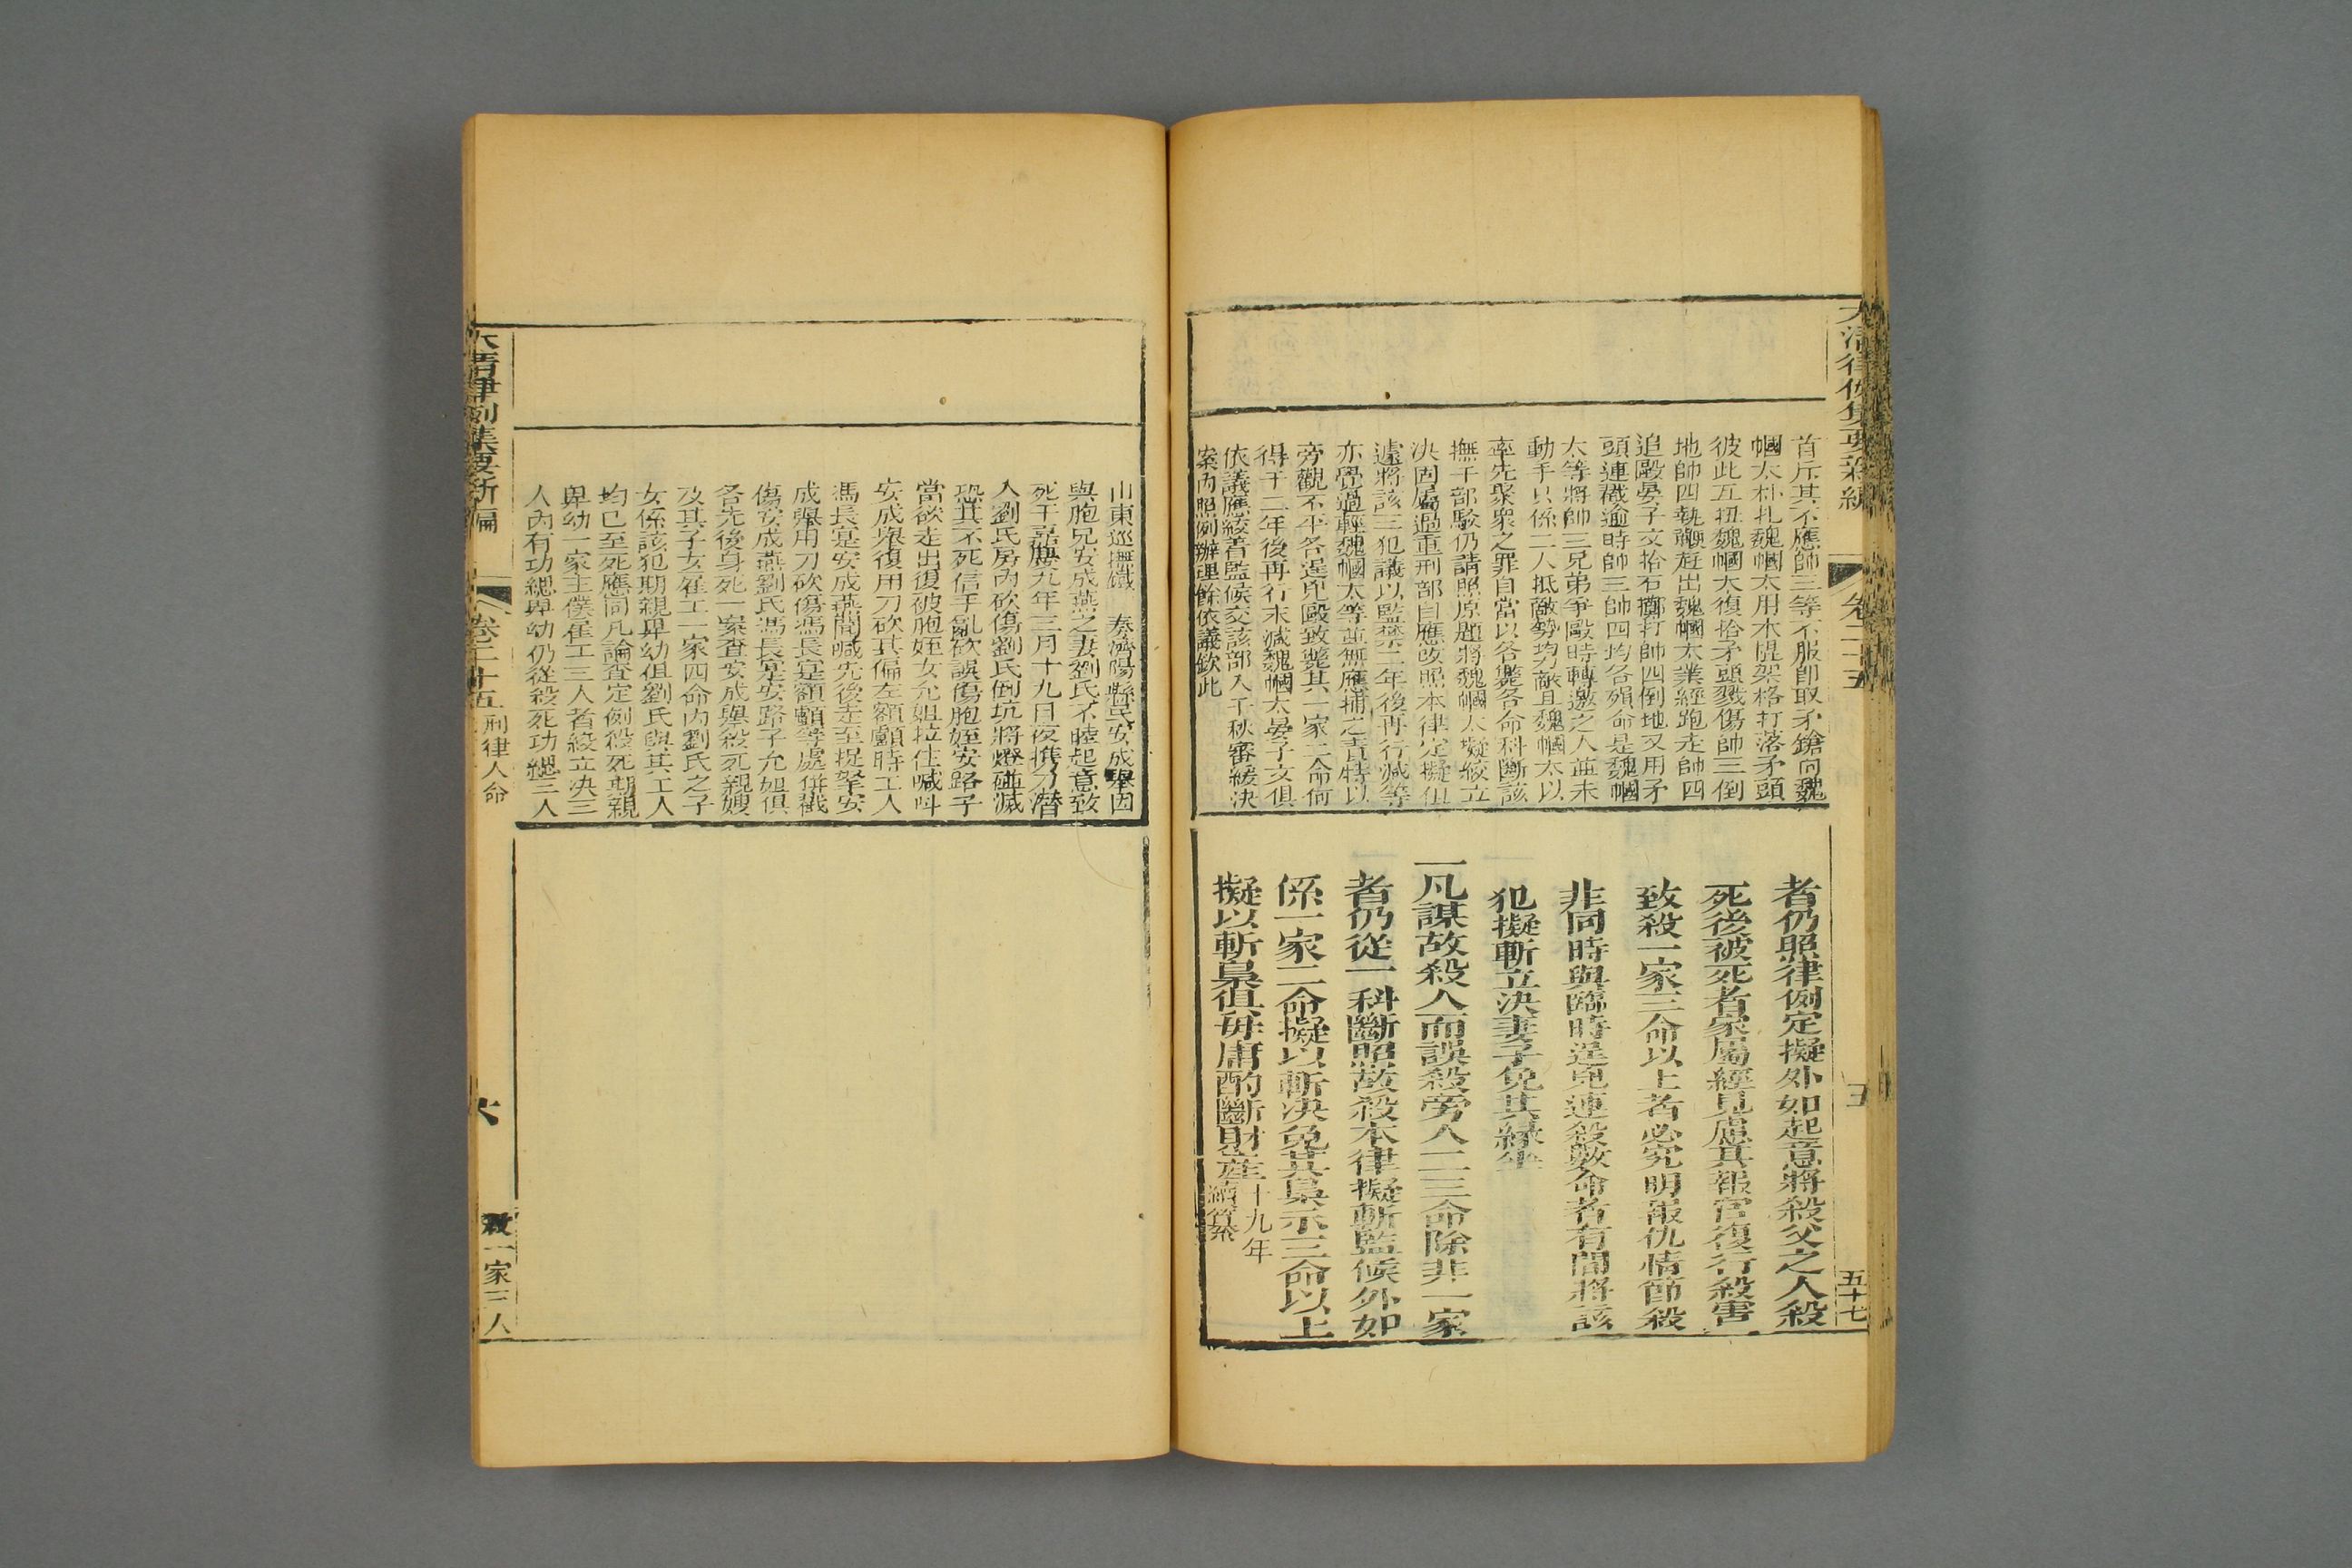 大清律例集要新編
卷二十五
五
五十七
首斥其不應帥三等不服卽取矛鎗向魏
幗太朴扎魏幗太用木棍架格打落矛頭
彼此互扭魏幗太復拾矛頭戳傷帥三倒
地帥四執鞭赶出魏幗太業經跑走帥四
追毆晏子文拾石擲打帥四倒地又用矛
頭連戳逾時帥三帥四均各殞命是魏幗
太等將帥三兄弟爭毆時轉邀之人並未
動手只係二人抵敵勢均力敵且魏幗太以
率先聚衆之罪自當以各斃各命科斷該
撫千部駮仍請照原題將魏幗太擬絞立
决固屬過重刑部自應改照本律定擬但
遽將該二犯議以監禁二年後再行減等
亦覺過輕魏幗太等並無應捕之責特以
旁觀不平各逞兇毆致斃其一家二命何
得于二年後再行末減魏幗太晏子文俱
依議應絞着監候交該部入于秋審緩決
案內照例辦理餘依議欽此
者仍照律例定擬外如起意將殺父之人殺
死後被死者家屬經見慮其報官復行殺害
致殺一家三命以上者必究明報仇情節殺
非同時與臨時逞兇連殺數命者有間將該
犯擬斬立決妻子免其緣坐
一凡謀故殺人而誤殺旁人二三命除非一家
者仍從一科斷照故殺本律擬斬監候外如
係一家二命擬以斬決免其梟示三命以上
擬以斬梟俱毋庸酌斷財產
十九年
續纂
山東巡撫鐵 奏濟陽縣民安成舉因
與胞兄安成燕之妻劉氏不睦起意致
死于嘉慶九年三月十九日夜攜刀潛
入劉氏房內砍傷劉氏倒炕將燈碰滅
恐其不死信手亂砍誤傷胞姪安路子
當欲走出復被胞姪女允姐拉住喊呌
安成舉復用刀砍其偏左額顱時工人
馮長寔安成燕聞喊先後走至捉拏安
成舉用刀砍傷馮長寔額顱等處併戳
傷安成燕劉氏馮長寔安路子允姐俱
各先後身死一案查安成舉殺死親嫂
及其子女雇工一家四命內劉氏之子
女係該犯期親卑幼但劉氏與其工人
均已至死應同凡論查定例殺死期親
卑幼一家主僕雇工三人者絞立决三
人內有功緦卑幼仍從殺死功緦三人
大清律例集要新編
卷二十五
刑律人命
六
殺一家三人